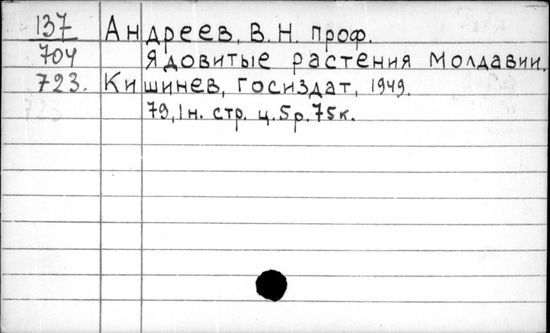 137 Андреев, В. Н. проф.
704 Ядовитые растения Молдавии.
723. Кишинев, Госиздат, 1949.
79, 1 н. стр. ц. 5 р. 75 к.